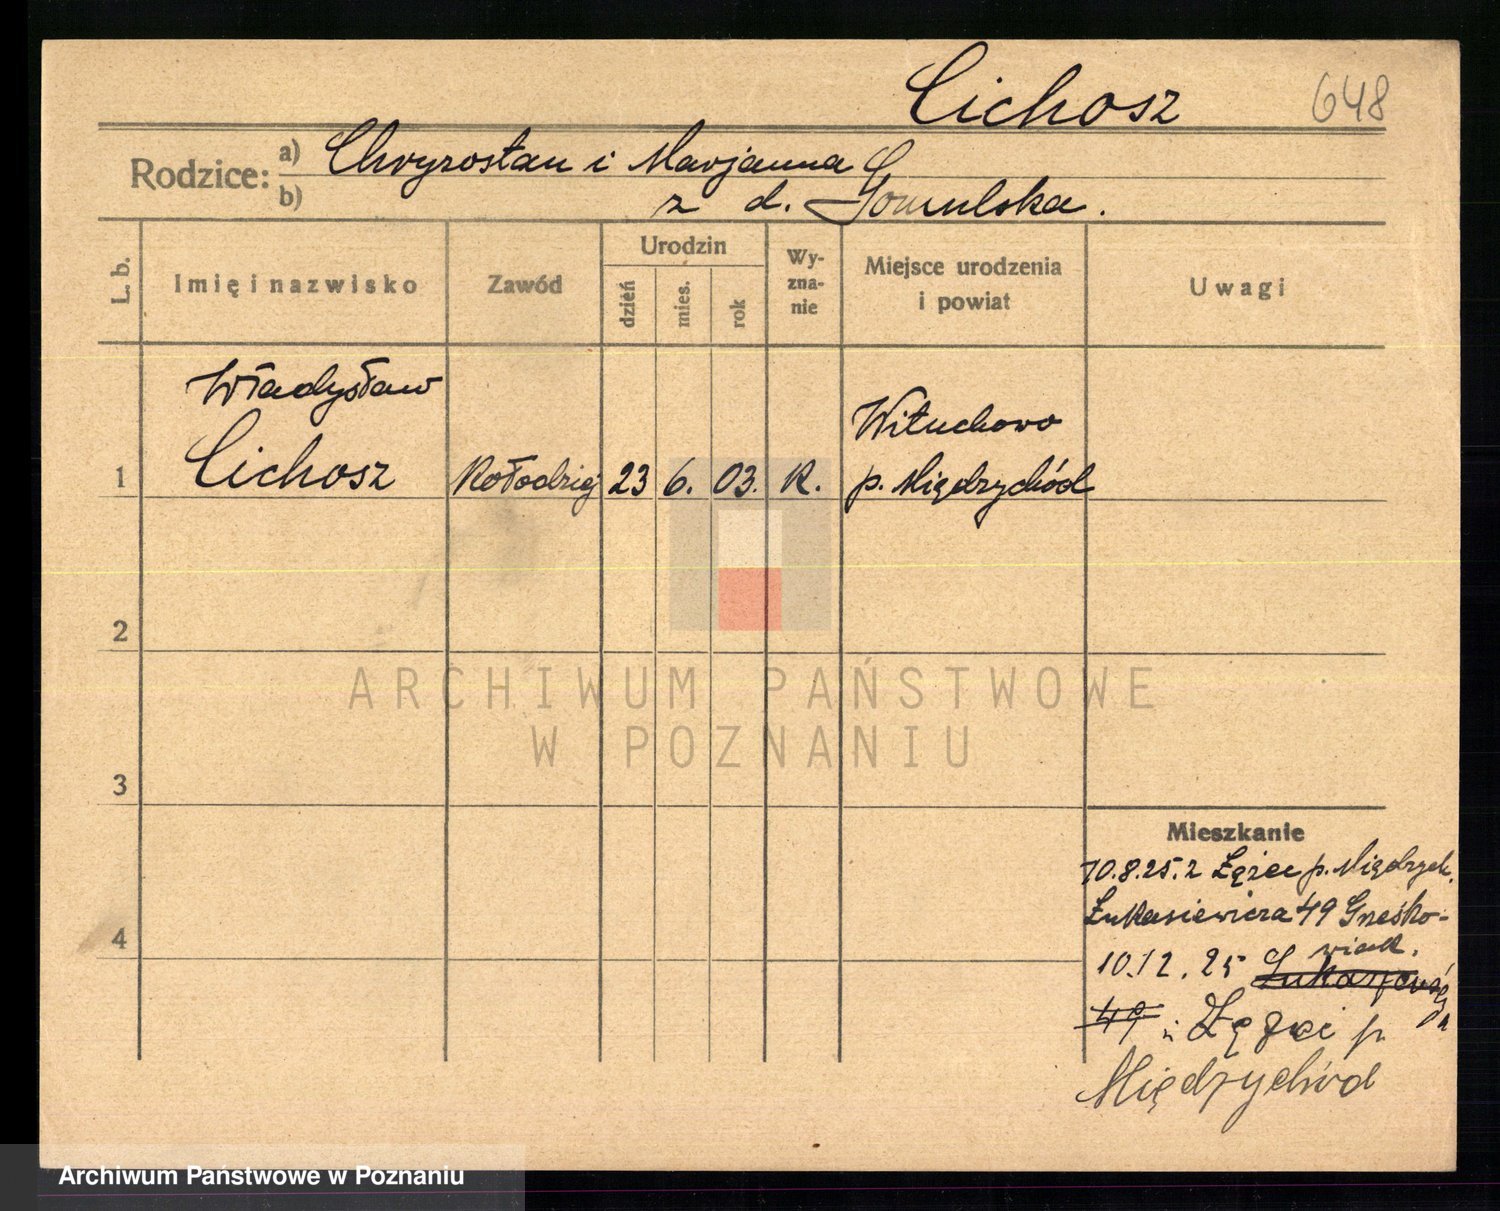 Cichosz 648
Rodzice: a) Chryzostan i Marjanna
b) z d. Gomulska.
L. b. Imię i nazwisko Zawód Urodzin dzień mies. rok Wy-zna-nie Miejsce urodzenia i powiat Uwagi
Władysław
Cichosz Kołodziej 23 6. 03. K. Wituchowo
p. Międzychód
1
2
3
4
Mieszkanie
10.8.25. z p. Międzych.
Łukasiewicza 49 Gnieźko-
wiak.
10.12.25
49 p
Międzychód
ARCHIWUM PAŃSTWOWE
W POZNANIU
Archiwum Państwowe w Poznaniu